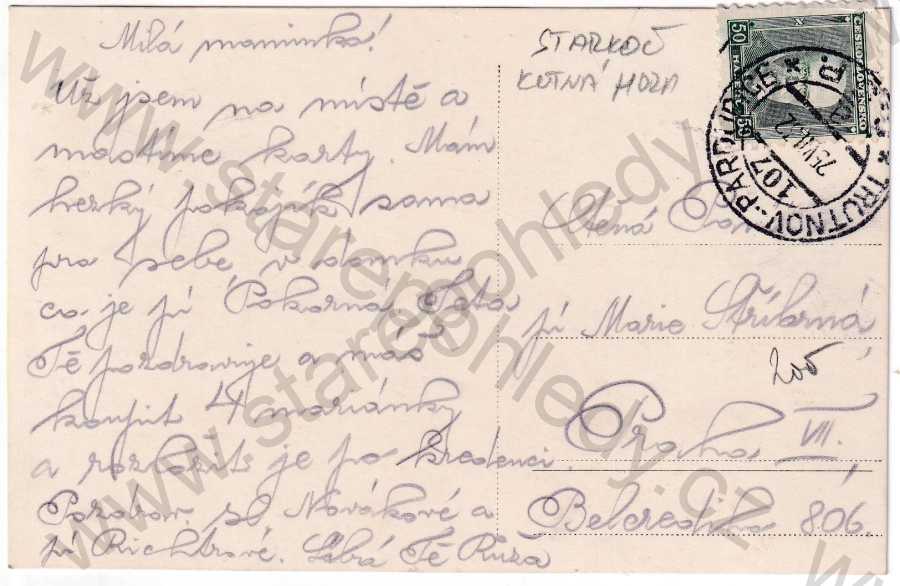 Milá maminko!
Už jsem na místě a
mastíme karty. Mám
hezký pokojík sama
pro sebe, v domku
co je pí Pokorná. Teta
Tě pozdravuje a máš
koupit 4 mariánky
a rozložit je po kredenci.
Pozdrav. sl. Novákové a
pí Richtrové. Líbá Tě Růza
STARKOČ
KUTNÁ HORA
ČESKOSLOVENSKO
50 HALÉŘŮ 50
TRUTNOV-PARDUBICE
107
Ctěná Paní
pí Marie Stříbrná
205
Praha VII.
Belcrediho 806.
www.starepohledy.cz